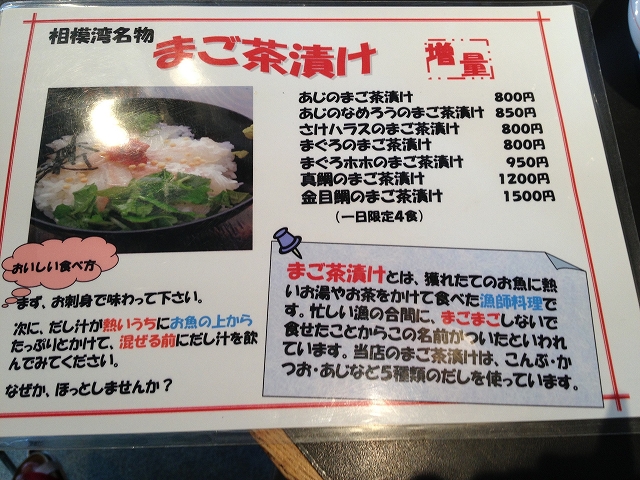 相模湾名物
まご茶漬け
増量
あじのまご茶漬け 800円
あじのなめろうのまご茶漬け 850円
さけハラスのまご茶漬け 800円
まぐろのまご茶漬け 800円
まぐろホホのまご茶漬け 950円
真鯛のまご茶漬け 1200円
金目鯛のまご茶漬け 1500円
（一日限定4食）
おいしい食べ方
まず、お刺身で味わって下さい。
次に、だし汁が熱いうちにお魚の上から
たっぷりとかけて、混ぜる前にだし汁を飲
んでみてください。
なぜか、ほっとしませんか？
まご茶漬けとは、獲れたてのお魚に熱
いお湯やお茶をかけて食べた漁師料理で
す。忙しい漁の合間に、まごまごしないで
食せたことからこの名前がついたといわれ
ています。当店のまご茶漬けは、こんぶ・か
つお・あじなど5種類のだしを使っています。